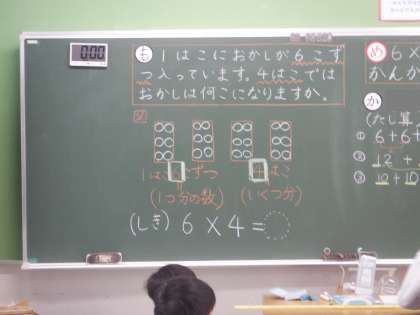 0:00
も
1はこにおかしが6こず
つ入っています。4はこでは
おかしは何こになりますか。
図
1はこ ずつ
はこ
(1つ分の数)
(いくつ分)
(しき) 6×4=
め
6×
かんか
か
(たし算)
① 6+6+
② 12+
③ 10+10